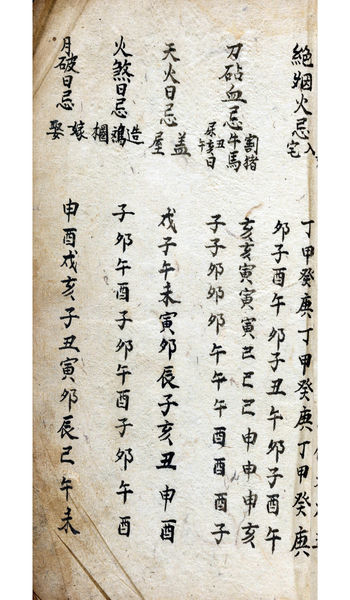 絕烟火忌 入宅 丁甲癸庚丁甲癸庚丁甲癸庚
卯子酉午卯子丑午卯子酉午
刀砧血忌 割猪牛馬 亥亥寅寅寅巳巳巳申申申亥
丑亥日 子子卯卯卯午午午酉酉酉子
天火日忌 蓋屋 戌子午未寅卯辰子亥丑申酉
火煞日忌 造 子卯午酉子卯午酉子卯午酉
月破日忌 嫁娶 申酉戌亥子丑寅卯辰巳午未